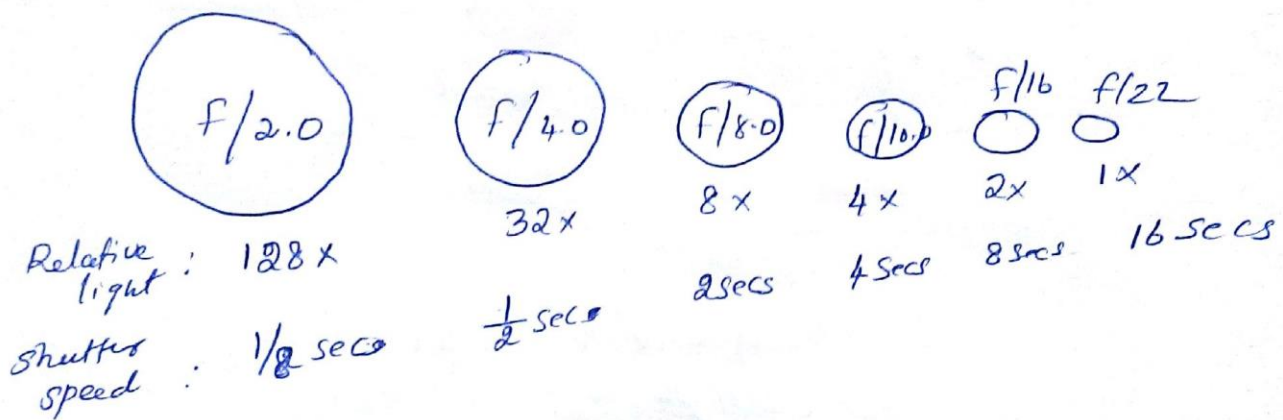 f/2.0 f/4.0 f/8.0 f/10.0 f/16 f/22
Relative light : 128x 32x 8x 4x 2x 1x
Shutter speed : 1/8 secs 1/2 secs 2secs 4secs 8secs 16 secs